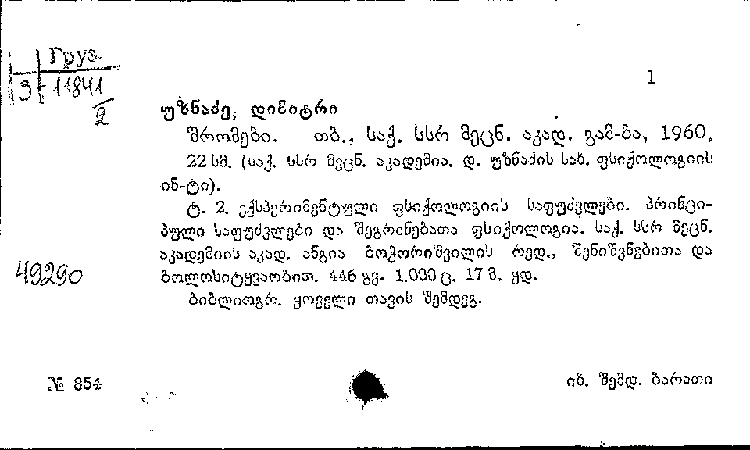 Груз.
3-11841
2
1
უზნაძე, დიმიტრი
შრომები. თბ., საქ. სსრ მეცნ. აკად. გამ-ბა, 1960.
22 სმ. (საქ. სსრ მეცნ. აკადემია. დ. უზნაძის სახ. ფსიქოლოგიის
ინ-ტი).
ტ. 2. ექსპერიმენტული ფსიქოლოგიის საფუძვლები. პრინცი-
პული საფუძვლები და შეგრძნებათა ფსიქოლოგია. საქ. სსრ მეცნ.
აკადემიის აკად. ანგია ბოჭორიშვილის რედ., შენიშვნებითა და
ბოლოსიტყვაობით. 446 გვ. 1.000 ც. 17 მ. ყდ.
ბიბლიოგრ. ყოველი თავის შემდეგ.
49290
№ 854
იხ. შემდ. ბარათი